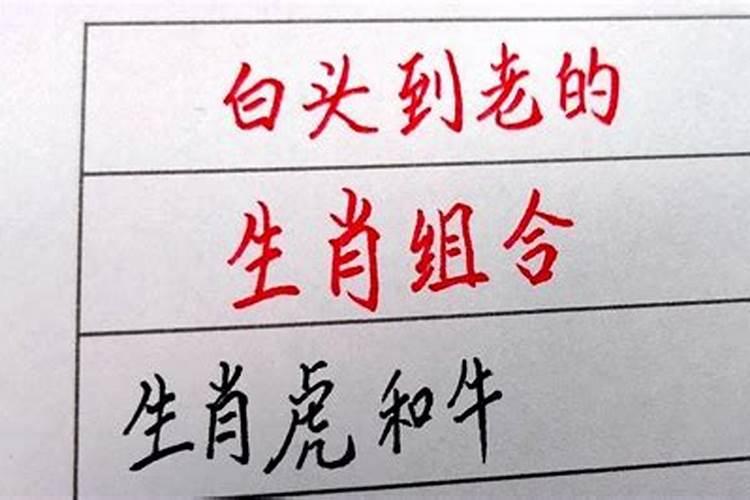 白头到老的
生肖组合
生肖虎和牛